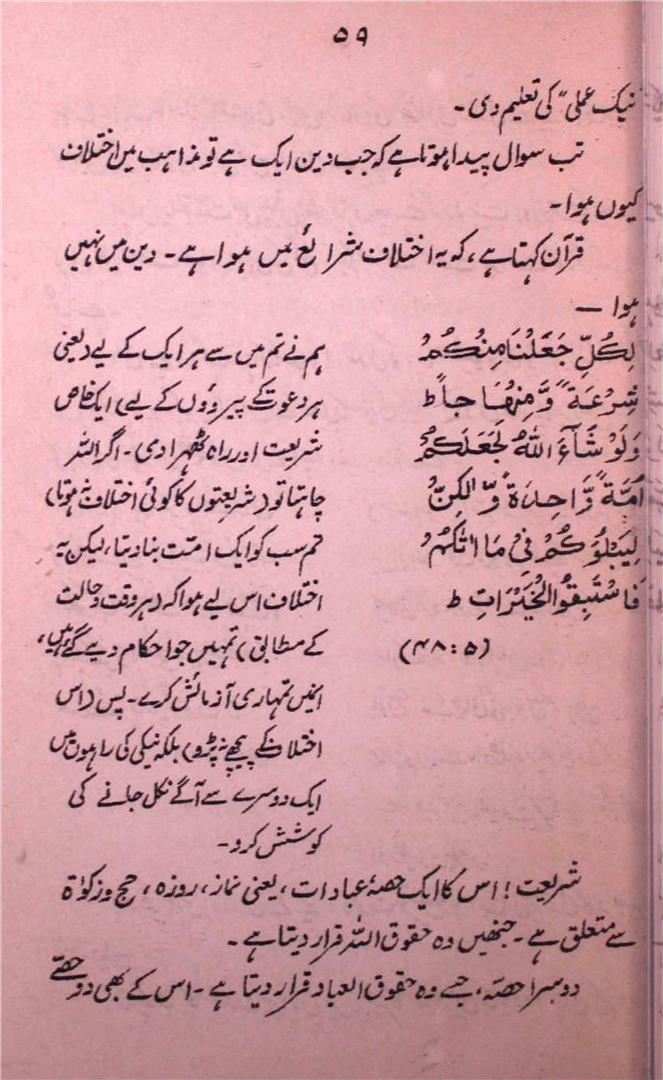 ۵۹
نیک عملی" کی تعلیم دی۔
تب سوال پیدا ہوتا ہے کہ جب دین ایک ہے تو مذاہب میں اختلاف
کیوں ہوا۔
قرآن کہتا ہے، کہ یہ اختلاف شرائع میں ہوا ہے۔ دین میں نہیں
ہوا —
لِكُلٍّ جَعَلْنَا مِنْكُمْ
شِرْعَةً وَّمِنْهَاجاً ط
وَلَوْ شَآءَ اللهُ لَجَعَلَكُمْ
اُمَّةً وَّاحِدَةً وَّلٰكِنْ
لِيَبْلُوَكُمْ فِيْ مَا اٰتٰكُمْ
فَاسْتَبِقُوا الْخَيْرَاتِ ط
(۴۸:۵)
ہم نے تم میں سے ہر ایک کے لیے (یعنی
ہر دعوت کے پیروؤں کے لیے) ایک خاص
شریعت اور راہ ٹھہرا دی۔ اگر اللہ
چاہتا تو (شریعتوں کا کوئی اختلاف نہ ہوتا)
تم سب کو ایک امت بنا دیتا، لیکن یہ
اختلاف اس لیے ہوا کہ (ہر وقت و حالت
کے مطابق) تمہیں جو احکام دیے گئے ہیں،
انہیں تمہاری آزمائش کرے۔ پس (اس
اختلاف کے پیچھے نہ پڑو) بلکہ نیکی کی راہوں میں
ایک دوسرے سے آگے نکل جانے کی
کوشش کرو۔
شریعت! اس کا ایک حصۂ عبادات، یعنی نماز، روزہ، حج و زکوٰۃ
سے متعلق ہے۔ جنھیں وہ حقوق اللہ قرار دیتا ہے۔
دوسرا حصہ، جسے وہ حقوق العباد قرار دیتا ہے۔ اس کے بھی دو حصّے